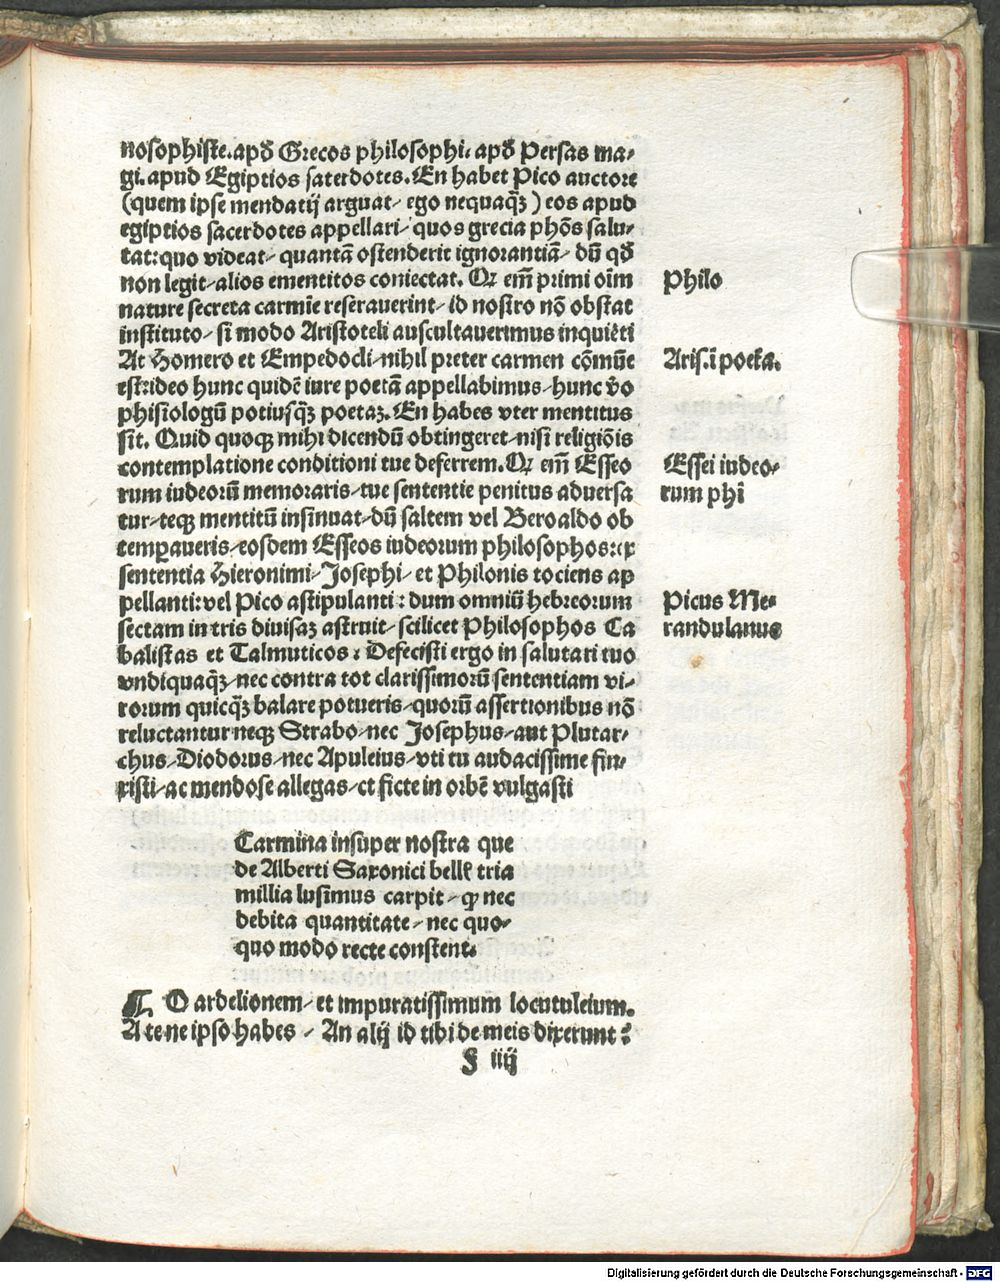 nosophiste. apđ Grecos philosophi. apđ Persas ma-
gi. apud Egiptios saterdotes. En habet Pico auctore
(quem ipse mendatij arguat/ ego nequaqȝ̃) eos apud
egiptios sacerdotes appellari/ quos grecia phõs salu-
tat: quo videat/ quantã ostenderit ignorantiã/ dũ qđ
non legit/ alios ementitos coniectat. Qꝛ em̃ primi oĩm
nature secreta carmĩe reserauerint/ id nostro nõ obstat
instituto/ si modo Aristoteli auscultauerimus inquiẽti
At Homero et Empedocli/ nihil preter carmen cõmũe
est: ideo hunc quidẽ iure poetã appellabimus/ hunc v̊o
phisiologũ potiusqȝ̃ poetaȝ. En habes vter mentitus
sit. Quid quoqꝫ mihi dicendũ obtingeret/ nisi religiõis
contemplatione conditioni tue deferrem. Qꝛ em̃ Esseo
rum iudeorũ memoraris/ tue sententie penitus aduersa
tur/ teqꝫ mentitũ insinuat/ dũ saltem vel Beroaldo ob
temꝑaueris/ eosdem Esseos iudeorum philosophos: ex
sententia Hieronimi/ Josephi/ et Philonis tociens ap
pellanti: vel Pico astipulanti: dum omniũ hebreorum
sectam in tris diuisaȝ astruit/ scilicet Philosophos Ca
balistas et Talmuticos: Defecisti ergo in salutari tuo
vndiquaqȝ̃/ nec contra tot clarissimorũ sententiam vi-
rorum quicqȝ̃ balare potueris/ quorũ assertionibus nõ
reluctantur neqꝫ Strabo/ nec Josephus/ aut Plutar-
chus/ Diodorus/ nec Apuleius/ vti tu audacissime fin-
xisti/ ac mendose allegas/ et ficte in orbẽ vulgasti
Philo
Aris. ĩ poetꝭa.
Essei iudeo-
rum phĩ
Picus Me-
randulanus
Carmina insuper nostra que
de Alberti Saxonici bellꝭ tria
millia lusimus carpit/ ꝙ nec
debita quantitate/ nec quo-
quo modo recte constent.
¶ O ardelionem/ et impuratissimum locutuleium.
A te ne ipso habes/ An alij id tibi de meis dixerunt?
g iiij
Digitalisierung gefördert durch die Deutsche Forschungsgemeinschaft - DFG